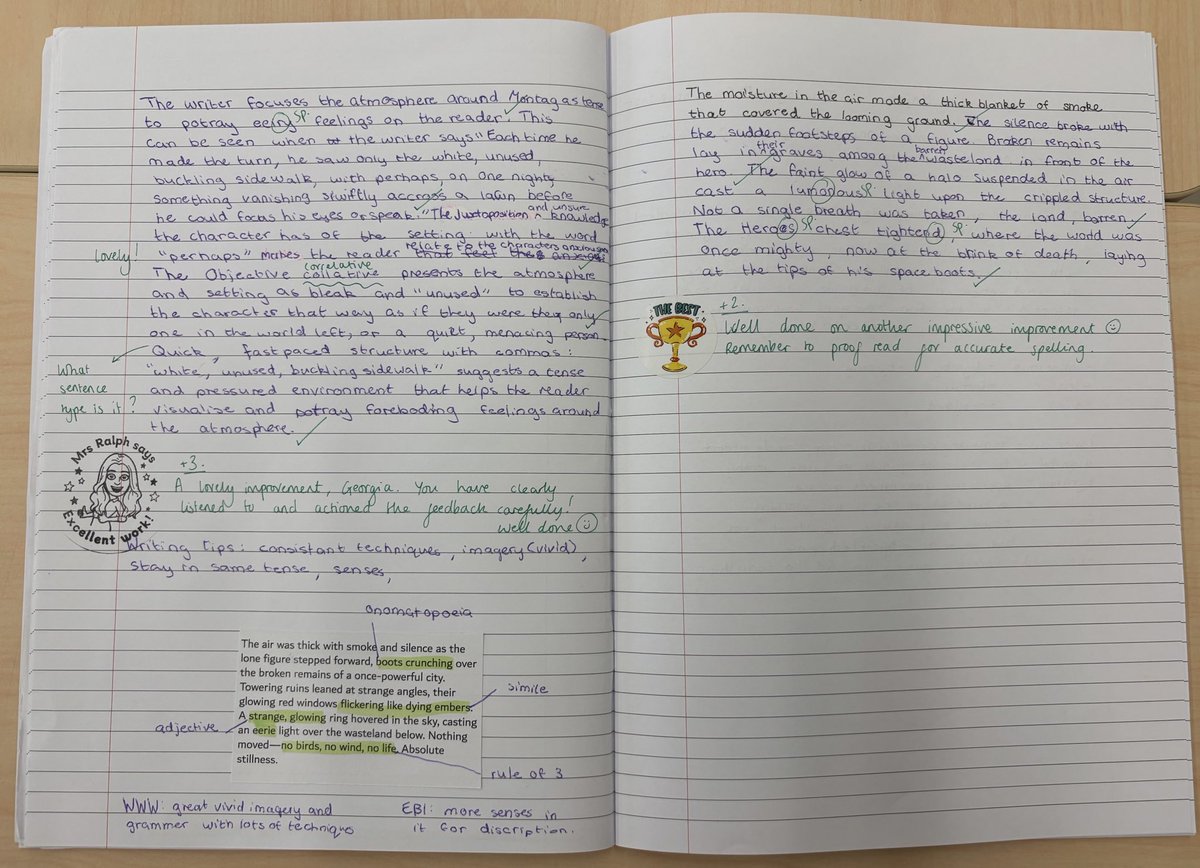 The writer focuses the atmosphere around Montag as tense
to potray eeriy sp. feelings on the reader. This
can be seen when the writer says "Each time he
made the turn, he saw only the white, unused,
buckling sidewalk, with perhaps on one night,
something vanishing swiftly accross a lawn before
he could focus his eyes or speak." The Juxtaposition and unsure knowledge
the character has of the setting with the word
Lovely!
"perhaps" makes the reader relate to the characters anxiousness
The Objective correlative collative presents the atmosphere
and setting as bleak and "unused" to establish
the character that way as if they were the only
one in the world left, or a quiet, menacing person.
Quick, fast paced structure with commas:
"white, unused, buckling sidewalk" suggests a tense
and pressured environment that helps the reader
visualise and potray foreboding feelings around
the atmosphere.
What
sentence
type is it?
Mrs Ralph says
Excellent work!
+3.
A lovely improvement, Georgia. You have clearly
listened to and actioned the feedback carefully!
Well done
Writing tips: consistant techniques, imagery (vivid),
stay in same tense, senses,
onomatopoeia
The air was thick with smoke and silence as the
lone figure stepped forward, boots crunching over
the broken remains of a once-powerful city.
Towering ruins leaned at strange angles, their
glowing red windows flickering like dying embers.
A strange, glowing ring hovered in the sky, casting
an eerie light over the wasteland below. Nothing
moved—no birds, no wind, no life. Absolute
stillness.
simile
adjective
rule of 3
WWW: great vivid imagery and
grammer with lots of technique
EBI: more senses in
it for discription.
The moisture in the air made a thick blanket of smoke
that covered the looming ground. The silence broke with
the sudden footsteps of a figure. Broken remains
lay in their graves among the barren wasteland in front of the
hero. The faint glow of a halo suspended in the air
cast a lumolous sp. light upon the crippled structure.
Not a single breath was taken, the land, barren.
The Heroes sp. chest tightend, sp. where the world was
once mighty, now at the brink of death, laying
at the tips of his space boots.
THE BEST
+2.
Well done on another impressive improvement
Remember to proof read for accurate spelling.